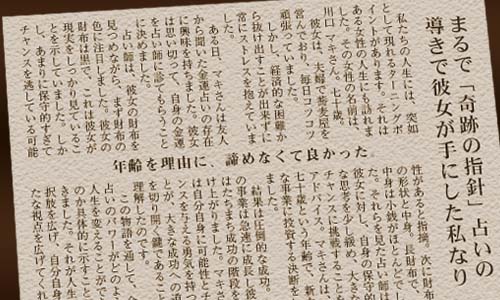 まるで「奇跡の指針」占いの
導きで彼女が手にした私なり
私たちの人生には、突如
として現れるターニングポ
イントがあります。それは
ある女性の人生にも訪れま
した。その女性の名前は、
川口マキさん。七十歳。
彼女は、夫婦で蕎麦屋を
営んでおり、毎日コツコツ
頑張っていました。
しかし、経済的な困難か
ら抜け出すことが出来ずに
常にストレスを抱えていま
した。
ある日、マキさんは友人
から聞いた金運占いの存在
に興味を持ちました。彼女
は思い切って、自身の金運
を占い師に診てもらうこと
に決めました。
占い師は、彼女の財布を
見つめながら、まず財布の
色に注目しました。彼女の
財布は黒で、これは彼女が
現実をしっかり見ているこ
とを示していました。しか
し、あまりに保守的すぎて
チャンスを逃している可能
年齢を理由に、諦めなくて良かった。
性があると指摘。次に財布
の形状と中身。長財布で、
中身は小銭がほとんどでし
た。それらを見た占い師は
彼女に対し、自身の保守的
な思考を少し緩め、大きな
チャンスに挑戦することを
アドバイス。マキさんは、
七十歳という年齢で、新た
な事業に投資する決断を
結果は圧倒的な成功。
の事業は急速に成長し彼
はたちまち成功の階段を
け上がりました。マキさ
は自分自身に可能性とチ
ンスを与える勇気を持つ
とが、大きな成功への道
を切り開く鍵であること
理解したのです。
この物語を通して、
占いのパワーがどのよ
人生を変えることがで
のか具体的に示すこと
きました。それが人生
択肢を広げ、自分自身
たな視点を広げてく